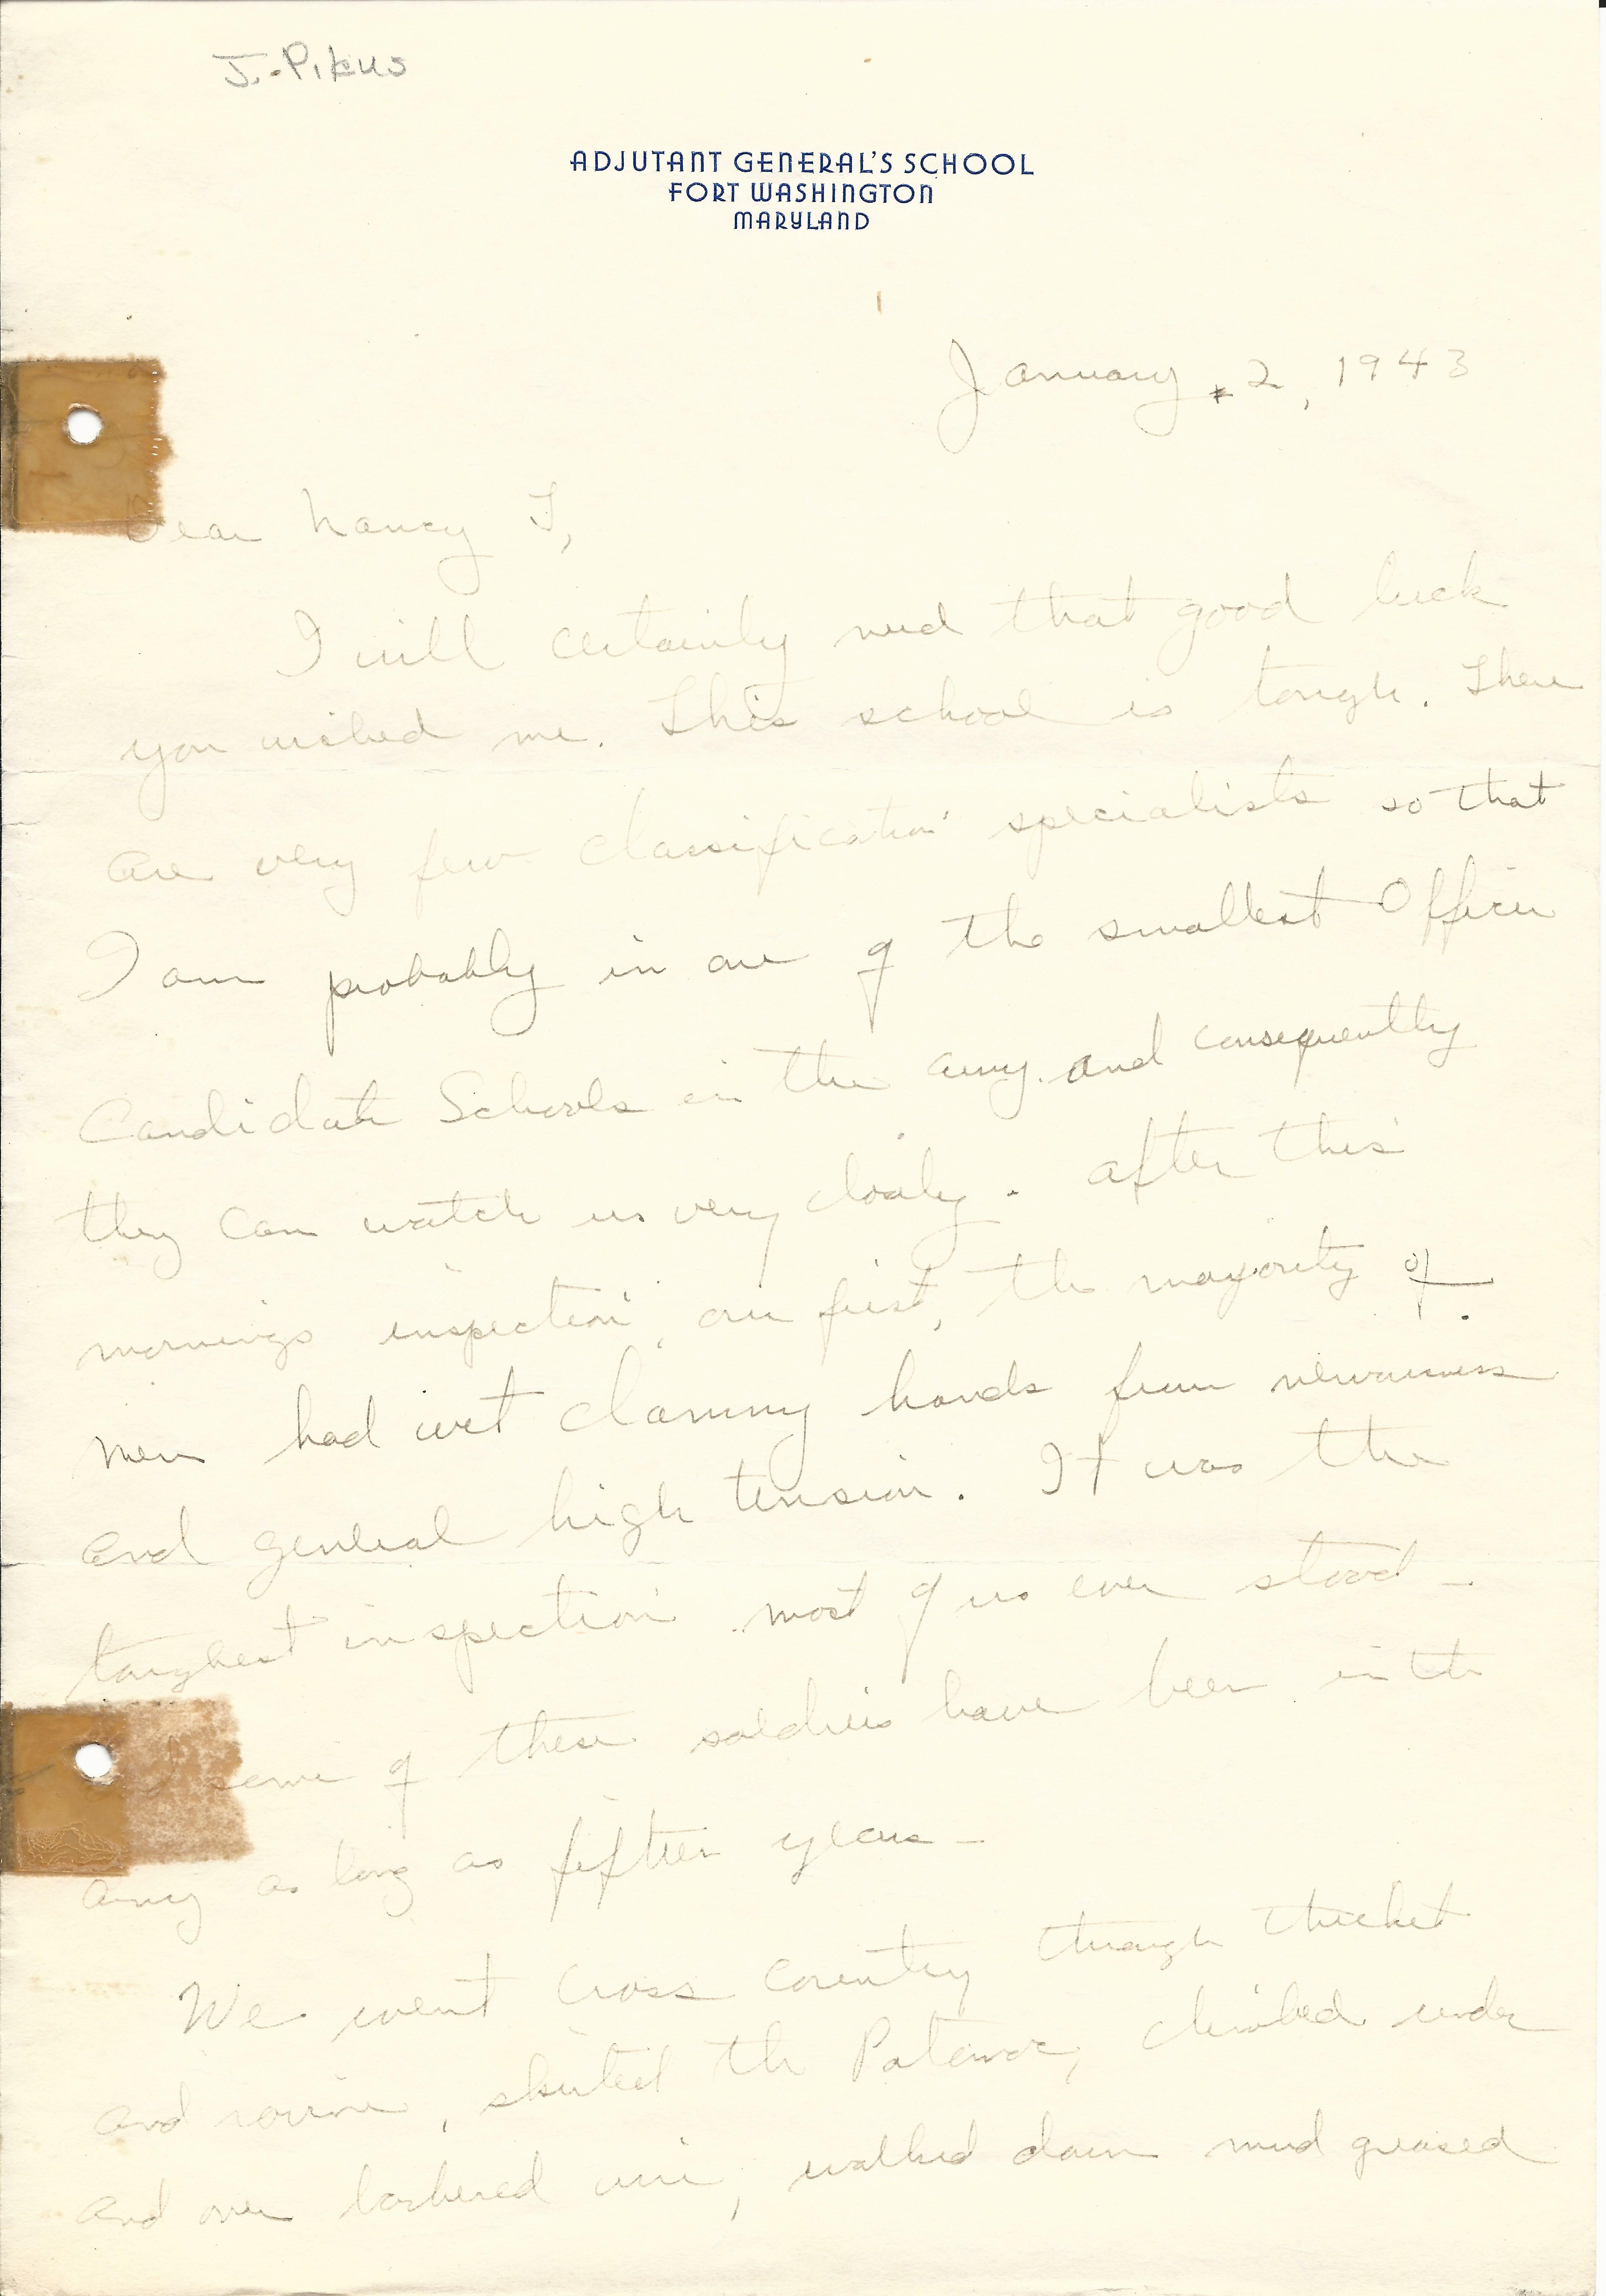 J. Pikus
ADJUTANT GENERAL'S SCHOOL
FORT WASHINGTON
MARYLAND
January 2, 1943
Dear Nancy T,
I will certainly need that good luck
you wished me. This school is tough. There
are very few classification specialists so that
I am probably in one of the smallest Officer
Candidate Schools in the army and consequently
they can watch us very closely. After this
mornings inspection, our first, the majority of
men had wet clammy hands from nervousness
and general high tension. It was the
toughest inspection most of us ever stood -
and some of these soldiers have been in the
army as long as fifteen years -
We went cross country through thicket
and ravine, skirted the Potomac, climbed under
and over barbered wire, walked down mud greased